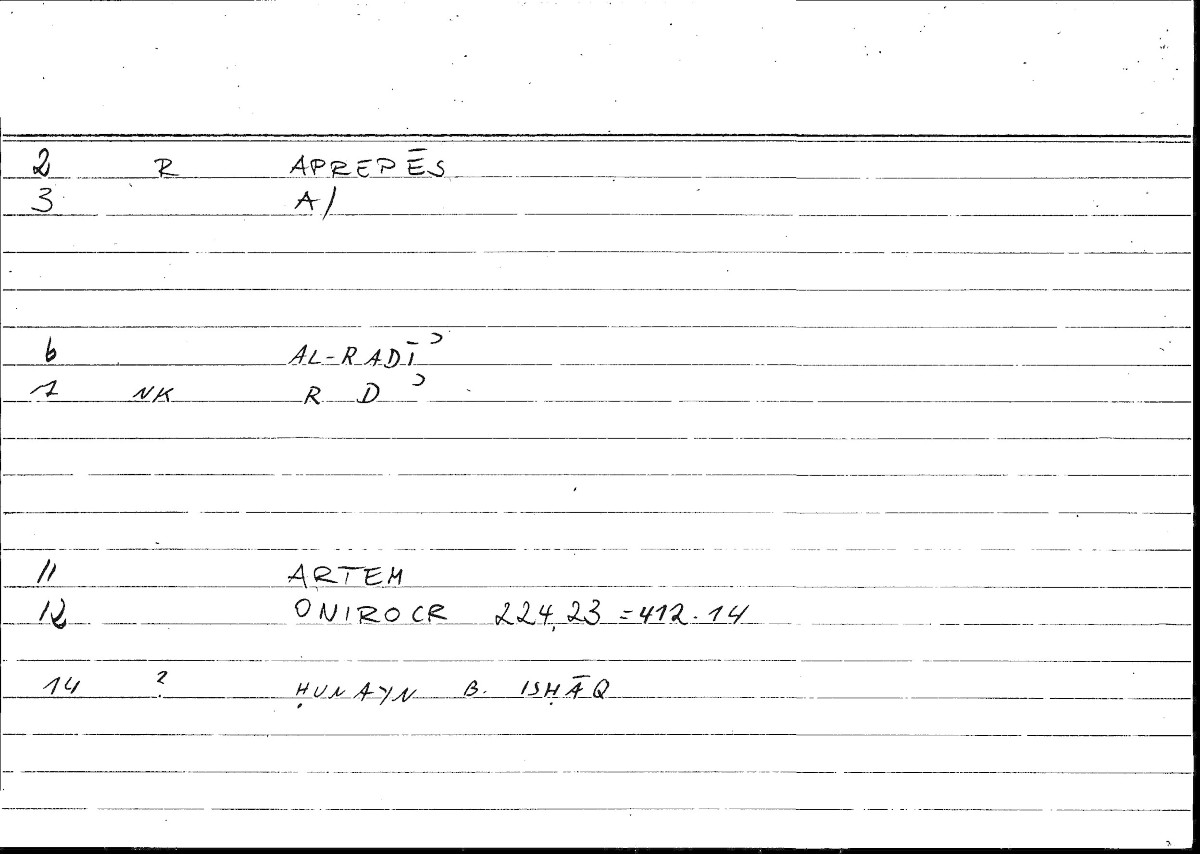 2 R APREPĒS
3 A/
6 AL-RADĪʾ
7 NK R D ʾ
11 ARTEM
12 ONIROCR 224,23 = 412.14
14 ? ḤUNAYN B. ISḤĀQ